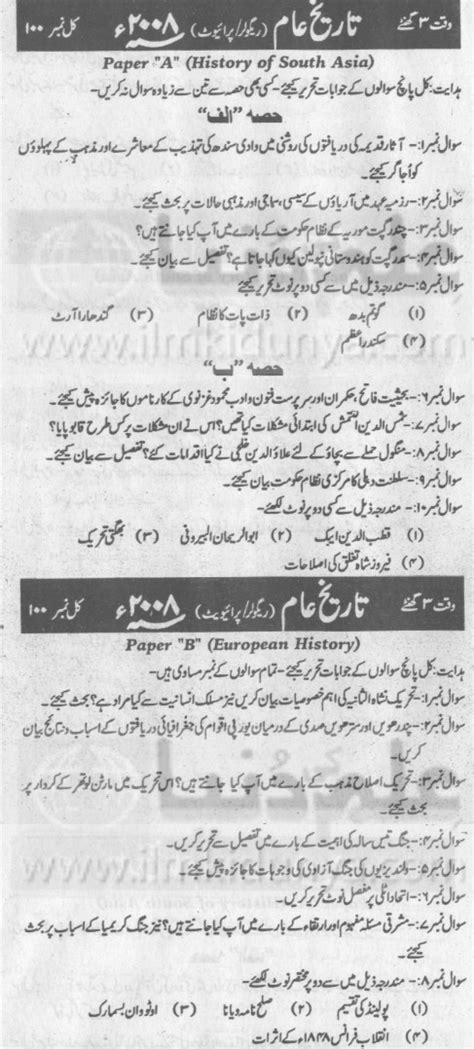 وقت ۳ گھنٹے تاریخ عام (ریگولر/پرائیویٹ) ۲۰۰۸ء کل نمبر ۱۰۰
Paper "A" (History of South Asia)
ہدایت: کل پانچ سوالوں کے جوابات تحریر کیجئے- کسی بھی حصہ سے تین سے زیادہ سوال نہ کریں-
حصہ "الف"
سوال نمبر۱:- آثار قدیمہ کی دریافتوں کی روشنی میں وادی سندھ کی تہذیب کے معاشرے اور مذہب کے پہلوؤں
کو اُجاگر کیجئے-
سوال نمبر۲:- رزمیہ عہد میں آریاؤں کے سیاسی، سماجی اور مذہبی حالات پر بحث کیجئے-
سوال نمبر۳:- چندر گپت موریہ کے نظام حکومت کے بارے میں آپ کیا جانتے ہیں؟
سوال نمبر۴:- سمدر گپت کو ہندوستانی نپولین کیوں کہا جاتا ہے؟ تفصیل سے بیان کیجئے-
سوال نمبر۵:- مندرجہ ذیل میں سے کسی دو پر نوٹ تحریر کیجئے
(۱) گوتم بدھ (۲) ذات پات کا نظام (۳) گندھارا آرٹ
(۴) سکندر اعظم
www.ilmkidunya.com
حصہ "ب"
سوال نمبر۶:- بحیثیت فاتح، حکمران اور سرپرست فنون و ادب محمود غزنوی کے کارناموں کا جائزہ پیش کیجئے-
سوال نمبر۷:- شمس الدین التمش کی ابتدائی مشکلات کیا تھیں؟ اس نے ان مشکلات پر کس طرح قابو پایا؟
سوال نمبر۸:- منگول حملے سے بچاؤ کے لئے علاؤ الدین خلجی نے کیا اقدامات کئے؟ تفصیل سے بیان کیجئے-
سوال نمبر۹:- سلطنت دہلی کا مرکزی نظام حکومت بیان کیجئے-
سوال نمبر۱۰:- مندرجہ ذیل میں سے کسی دو پر نوٹ لکھئے-
(۱) قطب الدین ایبک (۲) ابو الریحان البیرونی (۳) بھگتی تحریک
(۴) فیروز شاہ تغلق کی اصلاحات
وقت ۳ گھنٹے تاریخ عام (ریگولر/پرائیویٹ) ۲۰۰۸ء کل نمبر ۱۰۰
Paper "B" (European History)
ہدایت: کل پانچ سوالوں کے جوابات تحریر کیجئے- تمام سوالوں کے نمبر مساوی ہیں-
سوال نمبر۱:- تحریک نشاۃ الثانیہ کی اہم خصوصیات بیان کریں نیز مسلک انسانیت سے کیا مراد ہے؟ بحث کیجئے-
سوال نمبر۲:- پندرھویں اور سترھویں صدی کے درمیان یورپی اقوام کی جغرافیائی دریافتوں کے اسباب و نتائج بیان
کریں-
سوال نمبر۳:- تحریک اصلاح مذہب کے بارے میں آپ کیا جانتے ہیں؟ اس تحریک میں مارٹن لوتھر کے کردار پر
بحث کیجئے-
سوال نمبر۴:- جنگ تیس سالہ کی اہمیت کے بارے میں تفصیل سے تحریر کریں-
سوال نمبر۵:- ولندیزیوں کی جنگ آزادی کی وجوہات کا جائزہ پیش کیجئے-
www.ilmkidunya.com
سوال نمبر۶:- اتحاد اٹلی پر مفصل نوٹ تحریر کریں-
سوال نمبر۷:- مشرقی مسئلہ مفہوم اور ارتقاء کے بارے میں آپ کیا جانتے ہیں؟ نیز جنگ کریمیا کے اسباب پر بحث
کیجئے-
سوال نمبر۸:- مندرجہ ذیل میں سے دو پر مختصر نوٹ لکھئے-
(۱) پولینڈ کی تقسیم (۲) صلح نامہ ویانا (۳) اوٹو وان بسمارک
(۴) انقلاب فرانس ۱۸۴۸ء کے اثرات